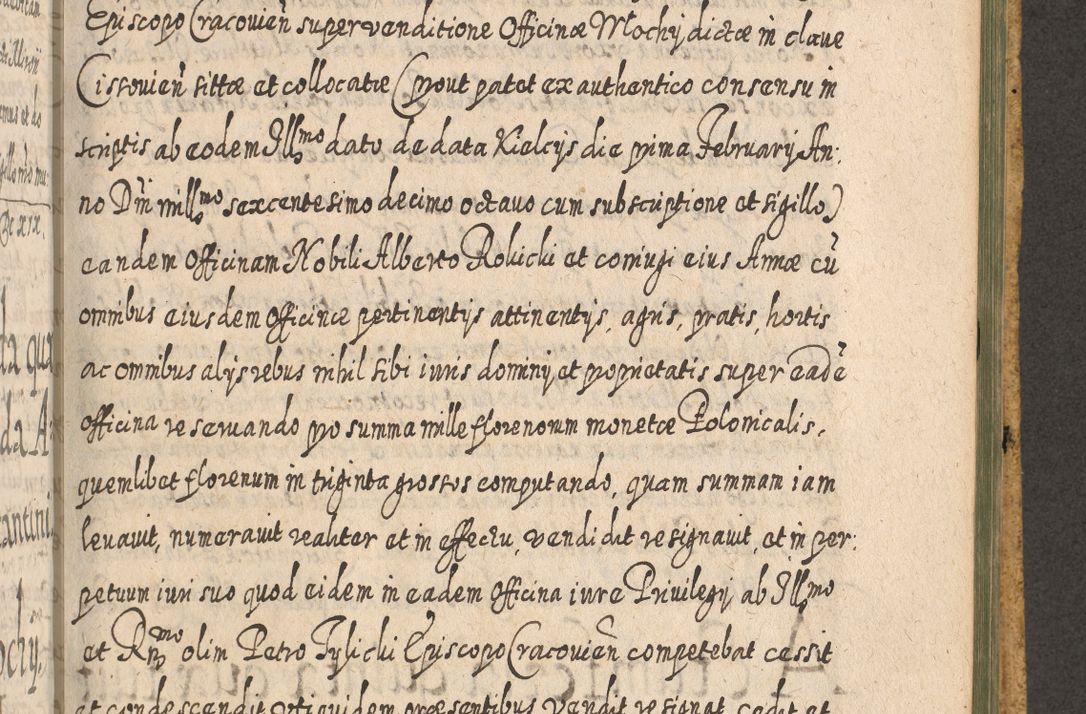 Episcopo Cracovień super venditione Officinæ Mochy dictæ in clave
Cissovień sittæ et collocatæ (prout patet ex authentico consensu in
scriptis ab eodem Illmo dato de data Kielcijs die prima Februarij An:
no Dni millmo sexcentesimo decimo octavo cum subscriptione et sigillo)
eandem Officinam Nobili Alberto Rokicki et coniugi eius Annæ cū
omnibus eiusdem Officinæ pertinentijs attinentijs, agris, pratis, hortis
ac omnibus alijs rebus nihil sibi iuris dominij et proprietatis super eadē
officina reservando pro summa mille florenorum monetæ Polonicalis,
quemlibet florenum in triginta grossos computando, quam summam iam
levavit, numeravit realiter et in effectu, vendidit resignavit, et in per:
petuum iuri suo quod eidem in eadem Officina iure Privilegij ab Illmo
et Rmo olim Petro Tylicki Episcopo Cracovień competebat cessit
et condescendit utiquidem præsentibus vendit resignat cedit et